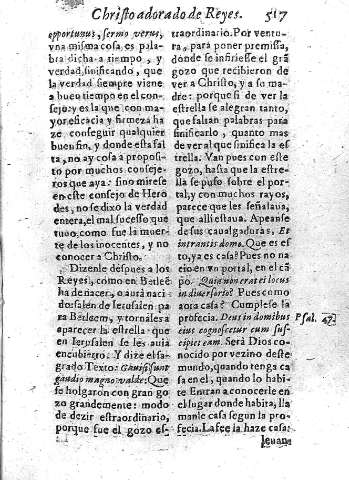 Christo adorado de Reyes. 517
opportunus, sermo verus,
vna misma cosa es pala-
bra dicha a tiempo, y
verdad, sinificando, que
la verdad siempre viene
a buen tiempo en el con-
sejo: y es la que con ma-
yor eficacia y firmeza ha
ze conseguir qualquier
buen fin, y donde esta fal
ta, no ay cosa a proposi-
to por muchos conseje-
ros que aya: sino mirese
en este consejo de Hero
des, no se dixo la verdad
entera, el mal sucesso que
tuuo, como fue la muer-
te de los inocentes, y no
conocer a Christo.
Dizenle despues a los
Reyes, como en Betleē
ha de nacer, o aurà naci-
do: salen de Ierusalen pa
ra Betleem, y tornales a
aparecer la estrella: que
en Ierusalen se les auia
encubierto. Y dize el sa-
grado Texto: Gauisi sunt
gaudio magno valde: Que
se holgaron con gran go
zo grandemente: modo
de dezir estraordinario,
porque fue el gozo es-
traordinario. Por ventu-
ra, para poner premissa,
donde se infiriesse el grã
gozo que recibieron de
ver a Christo, y a su ma-
dre: porque si de ver la
estrella se alegran tanto,
que faltan palabras para
sinificarlo, quanto mas
de ver al que sinifica la es
trella. Van pues con este
gozo, hasta que la estre-
lla se puso sobre el por-
tal, y con muchos rayos,
parece que les señalaua,
que alli estaua. Apeanse
de sus caualgaduras, Et
intrantis domo. Que es es
to, ya es casa? Pues no na
cio en vn portal, en el cã
po. Quia non erat ei locus
in diuersorio? Pues como
aora es casa? Cumplese la
profecia. Deus in domibus
eius cognoscetur cum sus-
cipiet eam. Serà Dios co-
nocido por vezino deste
mundo, quando tenga ca
sa en el, quando lo habi-
te Entran a conocerle en
el lugar donde habita, lla
manle casa segun la pro-
fecia. La fee la haze casa:
Psal. 47.
leuan-